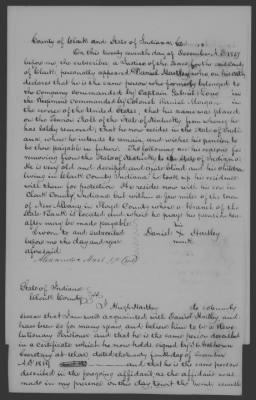 County of Clark and State of Indiana
On this twenty ninth day of December A.D. 1837
before me the subscriber a Justice of the Peace for the said County
of Clark personally appeared Daniel Hartley who on his oath
declares that he is the same person who formerly belonged to
the Company commanded by Captain Gabriel Long in
the Regiment Commanded by Colonel Daniel Morgan in
the service of the United States, that his name was placed
on the Pension Roll of the State of Kentucky from whence he
has lately removed, that he now resides in the State of Indi
ana where he intends to remain and wishes his pension to
be there payable in future. The following are his reasons for
removing from the State of Kentucky to the State of Indiana.
He is very old and decrepit and quite blind and his children
living in Clark County Indiana he took up his residence
with them for protection. He resides now with his son in
Clark County Indiana but within a few miles of the town
of New Albany in Floyd County where a Branch of the
State Bank is located and where he prays his pension here
after may be made payable
Sworn to and subscribed
before me the day and year
aforesaid
his
Daniel X Hartley
mark
State of Indiana
Clark County
I Hugh Hartley do solemnly
swear that I am well acquainted with Daniel Hartley and
have been so for many years and believe him to be a Revo
lutionary Pensioner and that he is the same person described
in a certificate which he now holds signed by J. C. Calhoun
Secretary at War dated the
A.D. 1819 and that he is the same person
described in the foregoing affidavit as the affidavit was
made in my presence on this day